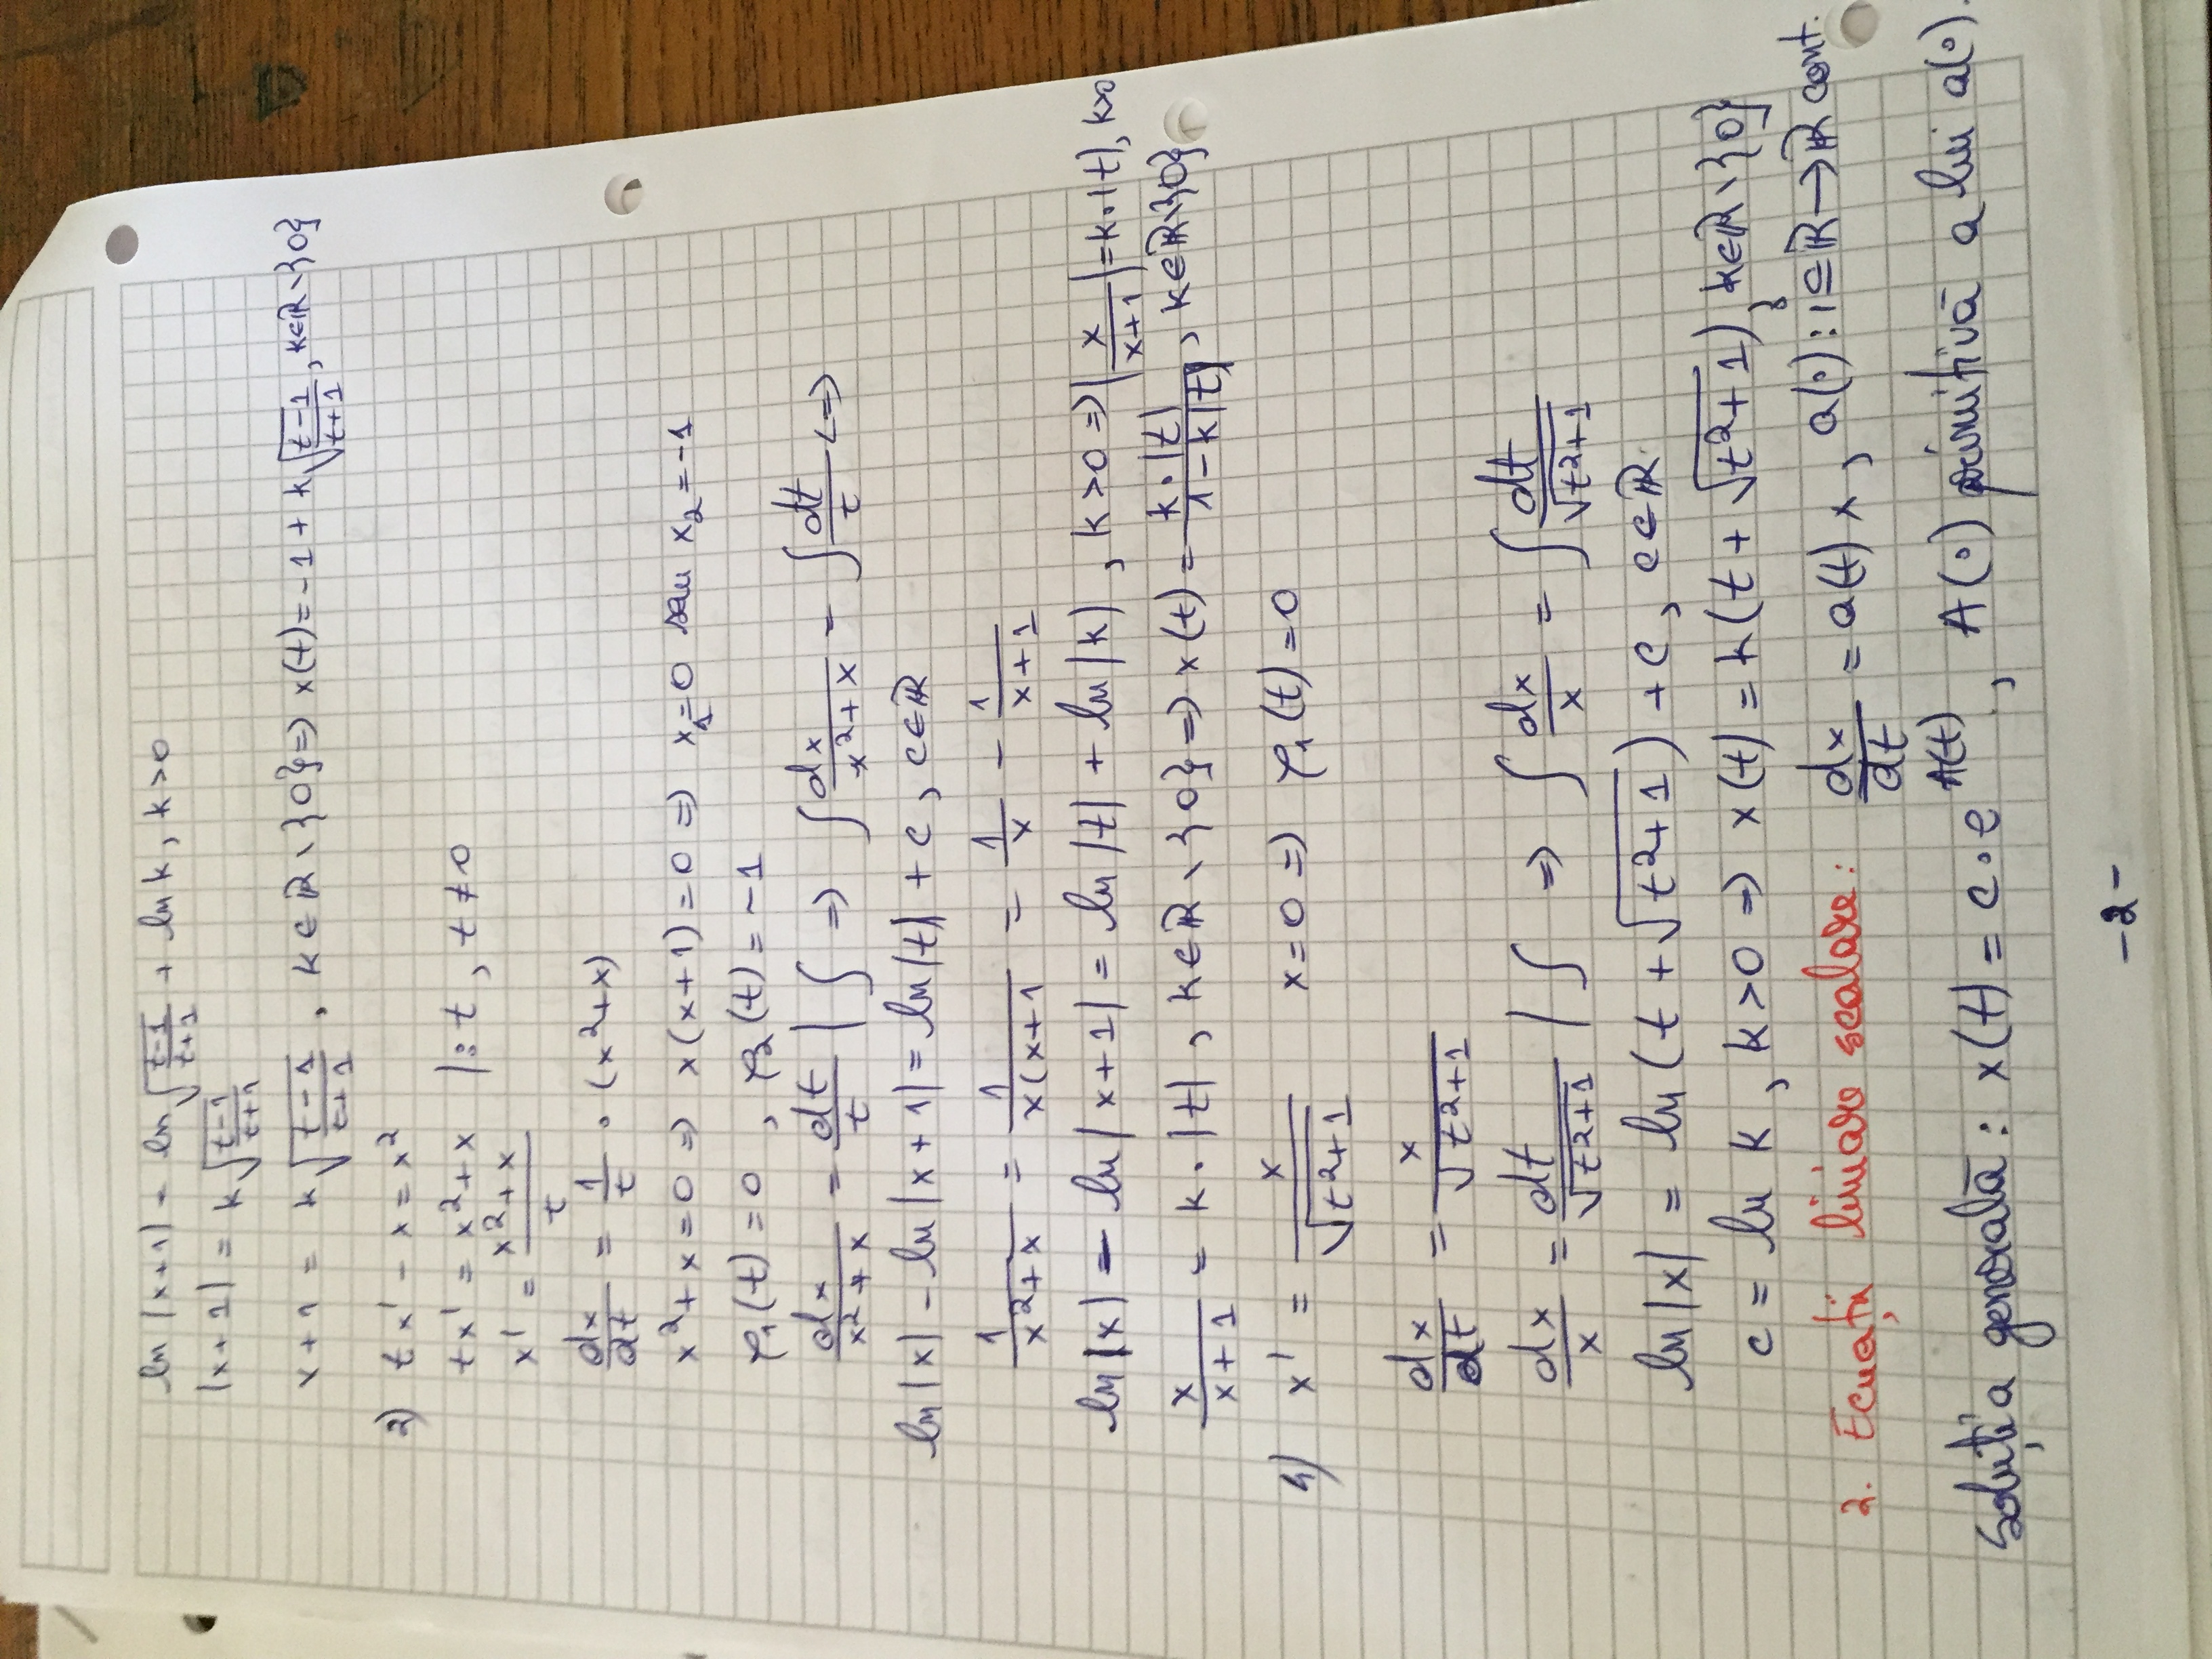 ln |x+1| = ln √((t-1)/(t+1)) + ln k, k>0
|x+1| = k √((t-1)/(t+1))
x+1 = k √((t-1)/(t+1)), k∈ℝ∖{0} => x(t) = -1 + k √((t-1)/(t+1)), k∈ℝ∖{0}
2) tx' - x = x²
tx' = x²+x |:t, t≠0
x' = (x²+x)/t
dx/dt = 1/t · (x²+x)
x²+x=0 => x(x+1)=0 => x₁=0 sau x₂=-1
φ₁(t)=0, φ₂(t)=-1
dx/(x²+x) = dt/t | ∫ => ∫ dx/(x²+x) = ∫ dt/t <=>
ln|x| - ln|x+1| = ln|t| + c, c∈ℝ
1/(x²+x) = 1/(x(x+1 = 1/x - 1/(x+1)
ln|x| - ln|x+1| = ln|t| + ln|k|, k>0 => |x/(x+1)| = k·|t|, k>0
x/(x+1) = k·|t|, k∈ℝ∖{0} => x(t) = k·|t|/(1-k|t|), k∈ℝ∖{0}
4) x' = x/√(t²+1) x=0 => φ₁(t)=0
dx/dt = x/√(t²+1)
dx/x = dt/√(t²+1) | ∫ => ∫ dx/x = ∫ dt/√(t²+1)
ln|x| = ln(t+√(t²+1)) + c, c∈ℝ.
c = ln k, k>0 => x(t) = k(t+√(t²+1)), k∈ℝ∖{0}
2. Ecuații liniare scalare: dx/dt = a(t)x, a(·): I⊆ℝ→ℝ cont.
Soluția generală: x(t) = c·e^A(t), A(·) primitivă a lui a(·).
-2-